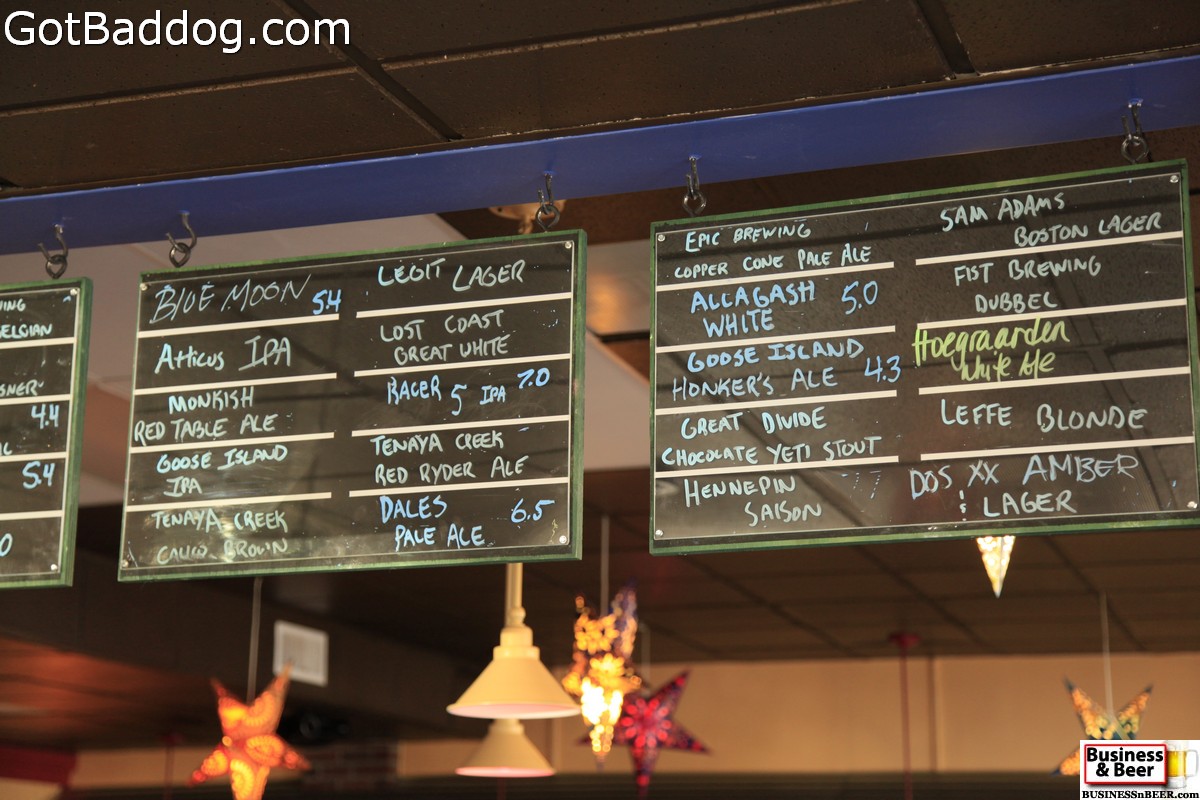 GotBaddog.com
ELGIAN
4.4
5.4
BLUE MOON 5.4
Atticus IPA
MONKISH
RED TABLE ALE
GOOSE ISLAND
IPA
TENAYA CREEK
CALICO BROWN
LEGIT LAGER
LOST COAST
GREAT WHITE
RACER 5 IPA 7.0
TENAYA CREEK
RED RYDER ALE
DALES 6.5
PALE ALE
EPIC BREWING
COPPER CONE PALE ALE
ALLAGASH 5.0
WHITE
GOOSE ISLAND
HONKER'S ALE 4.3
GREAT DIVIDE
CHOCOLATE YETI STOUT
HENNEPIN
SAISON
SAM ADAMS
BOSTON LAGER
FIST BREWING
DUBBEL
Hoegraarden
White Ale
LEFFE BLONDE
DOS XX AMBER
& LAGER
Business
& Beer
BUSINESSnBEER.com